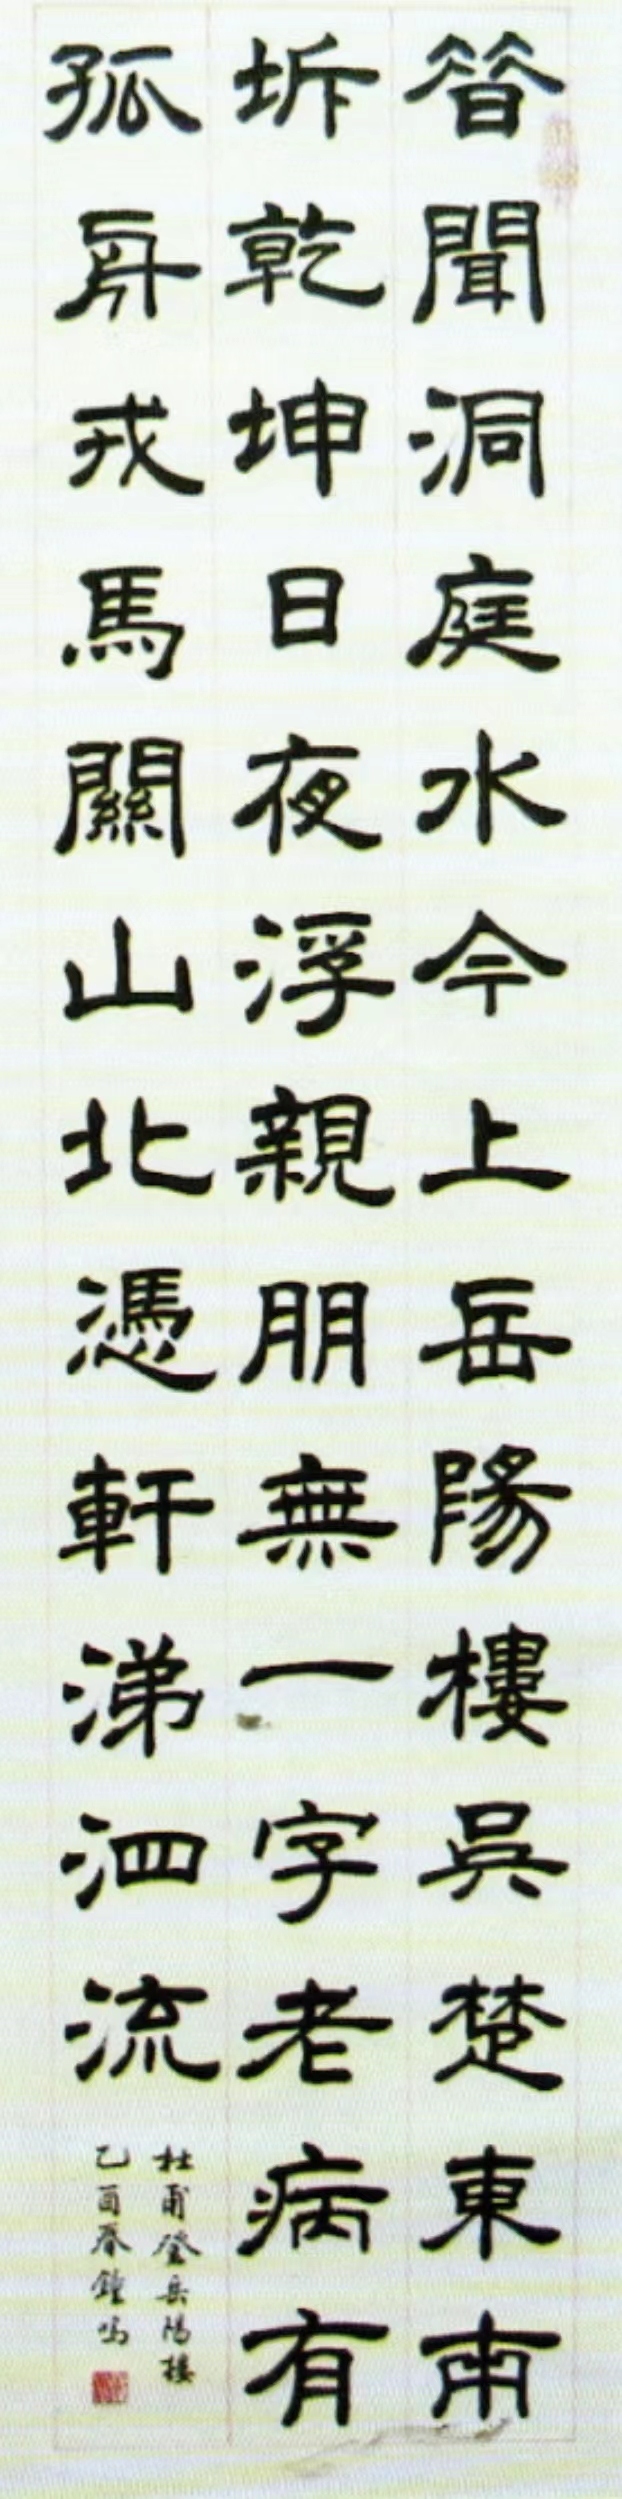 昝聞洞庭水今上岳陽樓吳楚東南
坼乾坤日夜浮親朋無一字老病有
孤舟戎馬關山北憑軒涕泗流
杜甫登岳陽樓
乙酉春鐘鳴